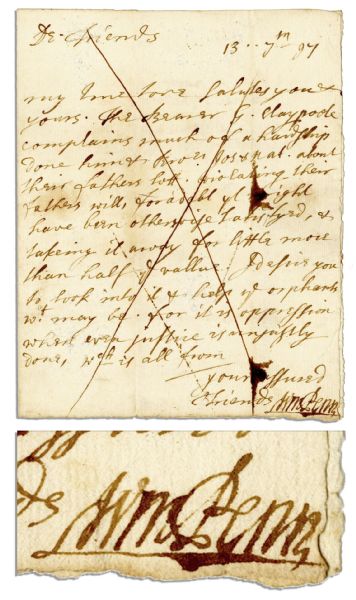 De. Friends
13 .. 7m 97
my true love salutes you &
yours. the Bearer G. Claypoole
complains much of a hardship
done him & Broer Jos & Nat. about
their fathers lott. violating their
fathers will, for a debt yt might
have been otherwise satisfyed, &
takeing it away for little more
than half ye vallue. I desire you
to look into it & help ye orphants
wt may be. for it is oppression
when even justice is unjustly
done, wch is all from
your assured
Friends Wm Penn
ds Wm Penn